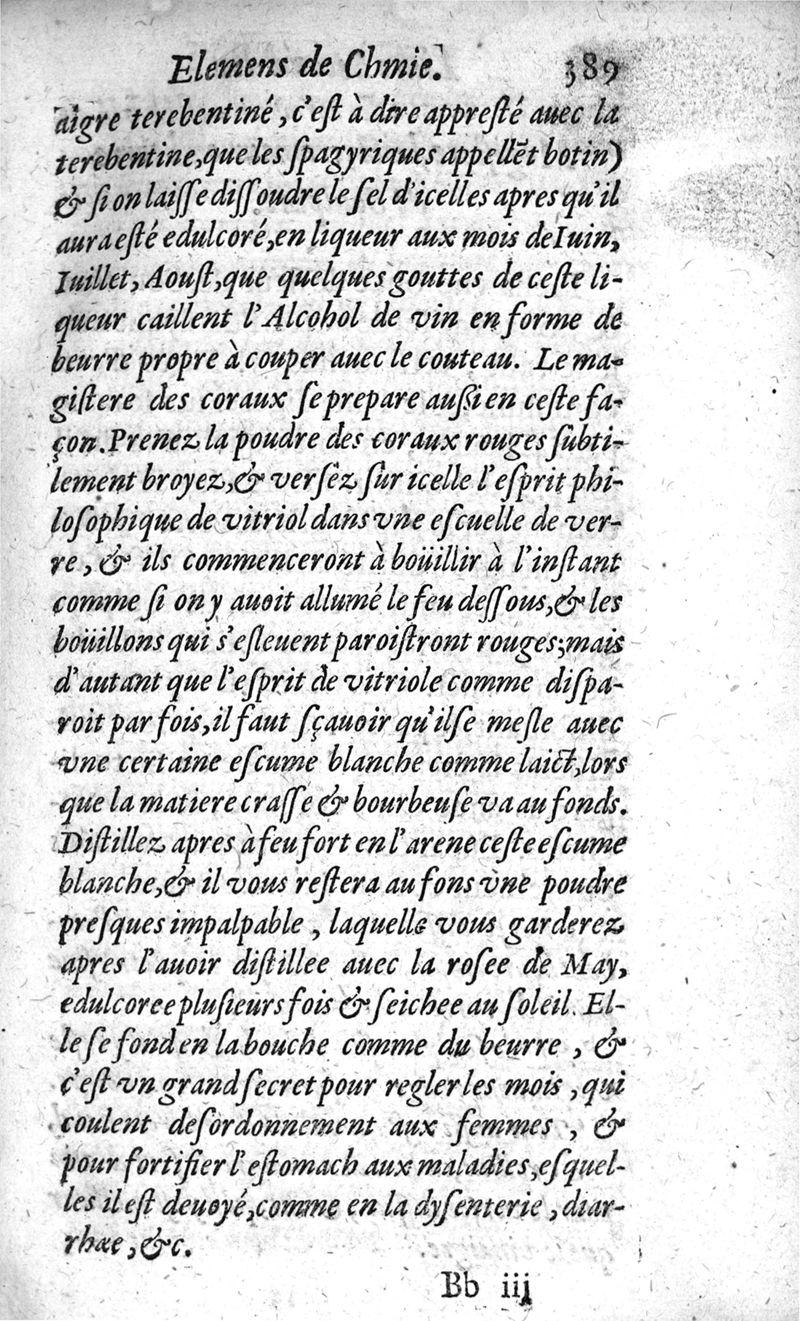 Elemens de Chmie. 389
aigre terebentiné, c'eſt à dire appreſté auec la
terebentine, que les ſpagyriques appellẽt botin)
& ſi on laiſſe diſſoudre le ſel d'icelles apres qu'il
aura eſté edulcoré, en liqueur aux mois de Iuin,
Iuillet, Aouſt, que quelques gouttes de ceſte li-
queur caillent l'Alcohol de vin en forme de
beurre propre à couper auec le couteau. Le ma-
giſtere des coraux ſe prepare auſsi en ceſte fa-
çon. Prenez la poudre des coraux rouges ſubti-
lement broyez, & verſêz ſur icelle l'eſprit phi-
loſophique de vitriol dans vne eſcuelle de ver-
re, & ils commenceront à boüillir à l'inſtant
comme ſi on y auoit allumé le feu deſſous, & les
boüillons qui s'eſleuent paroiſtront rouges; mais
d'autant que l'eſprit de vitriole comme diſpa-
roit par fois, il faut ſçauoir qu'il ſe meſle auec
vne certaine eſcume blanche comme laict, lors
que la matiere craſſe & bourbeuſe va au fonds.
Diſtillez apres à feu fort en l'arene ceſte eſcume
blanche, & il vous reſtera au fons vne poudre
preſques impalpable, laquelle vous garderez
apres l'auoir diſtillee auec la roſee de May,
edulcoree pluſieurs fois & ſeichee au ſoleil. El-
le ſe fond en la bouche comme du beurre, &
c'eſt vn grand ſecret pour regler les mois, qui
coulent deſordonnement aux femmes, &
pour fortifier l'eſtomach aux maladies, eſquel-
les il eſt deuoyé, comme en la dyſenterie, diar-
rhæe, &c.
Bb iij